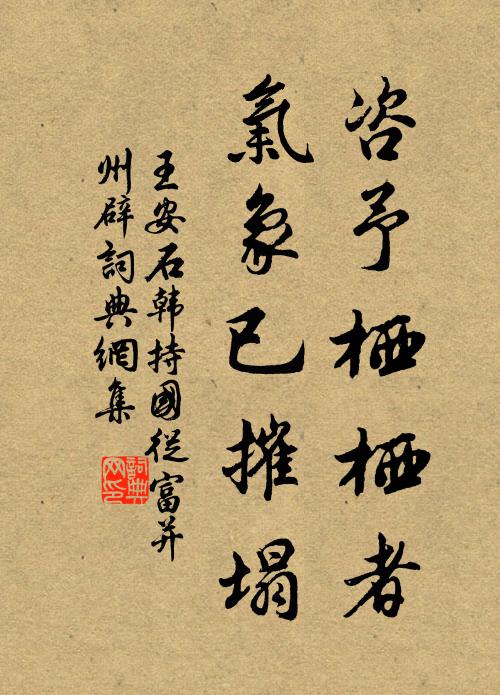 咨予栖栖者
氣象已摧塌
王安石韩持國從富并
州辟詞典網集
詞典网印